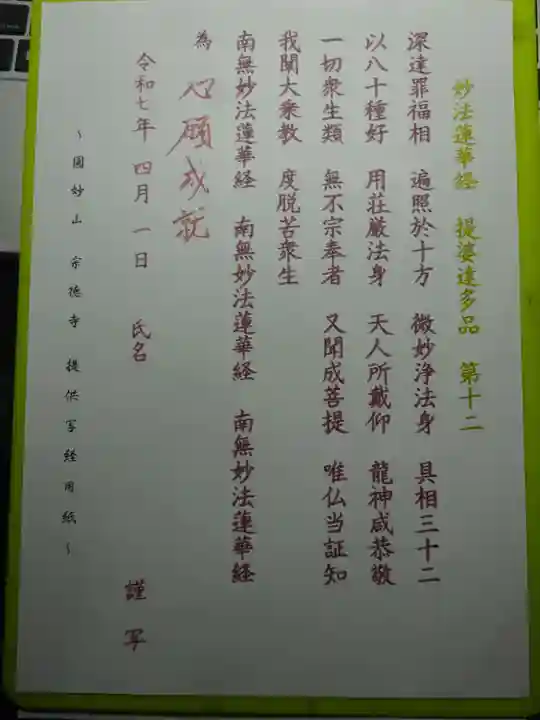 妙法蓮華経 提婆達多品 第十二
深達罪福相 遍照於十方 微妙浄法身 具相三十二
以八十種好 用荘厳法身 天人所戴仰 龍神咸恭敬
一切衆生類 無不宗奉者 又聞成菩提 唯仏当証知
我聞大乗教 度脱苦衆生
南無妙法蓮華経 南無妙法蓮華経 南無妙法蓮華経
為 心願成就
令和七年 四月 一日 氏名 謹写
~圓妙山 宗徳寺 提供写経用紙~